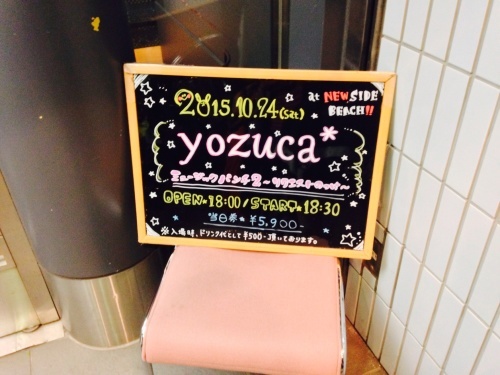 2015.10.24(sat)
at NEW SIDE
BEACH!!
yozuca*
ミュージックパンチ2～リクエストのつどい～
OPEN★18:00/START★18:30
当日券★¥5,900-
※入場時、ドリンク代として¥500-頂いております。